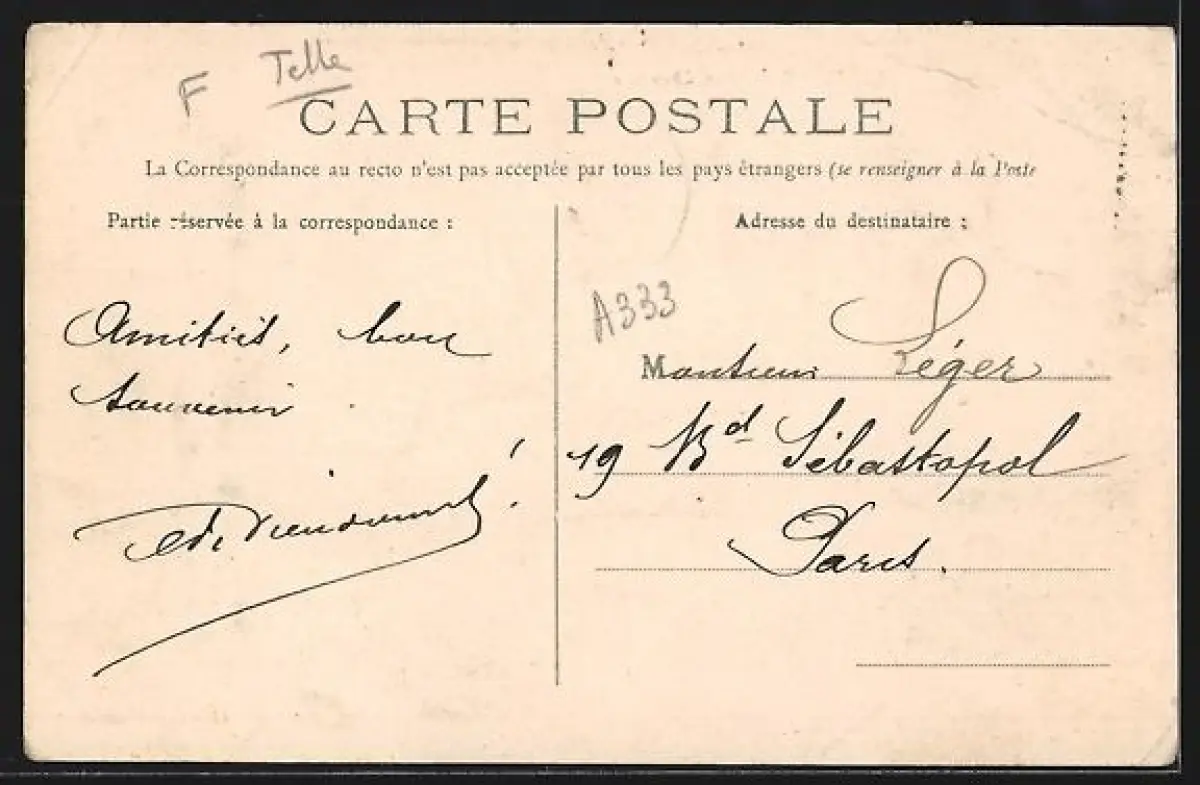 F Telle
CARTE POSTALE
La Correspondance au recto n'est pas acceptée par tous les pays étrangers (se renseigner à la Poste
Partie réservée à la correspondance :
Adresse du destinataire :
Amitiés, bon
souvenir
!
A333
Monsieur Léger
19 Bd Sébastopol
Paris.